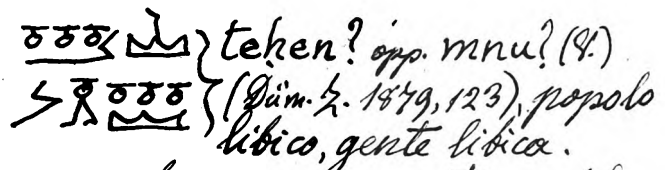 teḥen? opp. mnu?
(Düm. Z. 1879, 123), popolo
libico, gente libica.